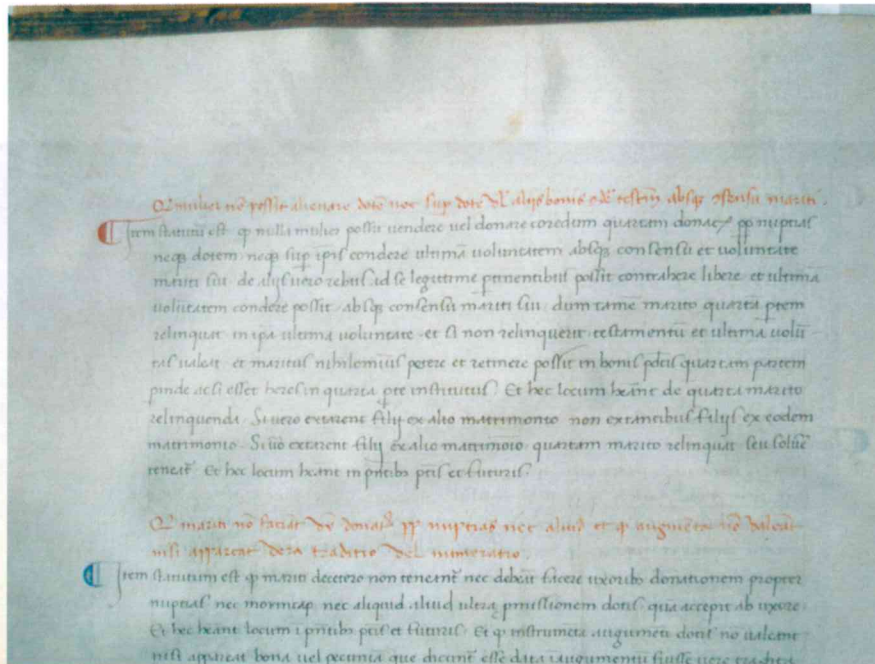 Q mulier nō possit alienare dotē nec sup dote vl alijs bonis 9dē testm absqȝ 9sensu mariti.
Item statutū est q nulla mulier possit uendere uel donare coredum quartam donac pp nuptias
neqȝ dotem neqȝ sup ipis condere ultimā uoluntatem absqȝ consensu et uoluntate
mariti sui. de alijs uero rebus ad se legitime ptinentibus possit contrahere libere et ultimā
uolūtatem condere possit absqȝ consensu mariti sui dum tamē marito quartā ptem
relinquat in ipa ultima uoluntate. et si non relinquerit. testamentū et ultima uolū
tas ualeat et maritus nihilominus petere et retinere possit in bonis pdcis quartam partem
pinde ac si esset heres in quarta pte institutus. Et hec locum heānt de quarta marito
relinquenda. Si uero extarent filij ex alio matrimonio non extantibus filijs ex eodem
matrimonio. Si uō extarent filij ex alio matrimoīo quartam marito relinquat seu soluē
teneat. Et hec locum heānt in pntibȝ ptis et futuris.
Q mariti nō faciāt donac pp nuptias nec aliud et q augmenta nō ualeāt
nisi appareat uera traditio uel numeratio.
Item statutum est q mariti decetero non teneant nec debeāt facere uxoribȝ donationem propter
nuptias nec morincap nec aliquid aliud ultra pmissionem dotis quā accepit ab uxore.
Et hec heānt locum ī pntibȝ ptis et futuris. Et q instrumēta augumēti dotis nō ualeant
nisi appareat bona uel pecunia que dicunt esse data ī augumentū fuisse uere tradita